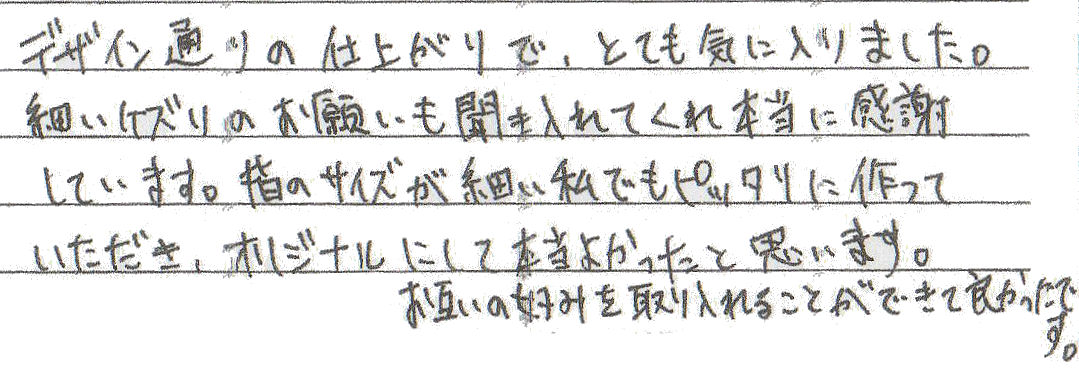 デザイン通りの仕上がりで、とても気に入りました。
細いケズリのお願いも聞き入れてくれ本当に感謝
しています。指のサイズが細い私でもピッタリに作って
いただき、オリジナルにして本当よかったと思います。
お互いの好みを取り入れることができて良かったで
す。